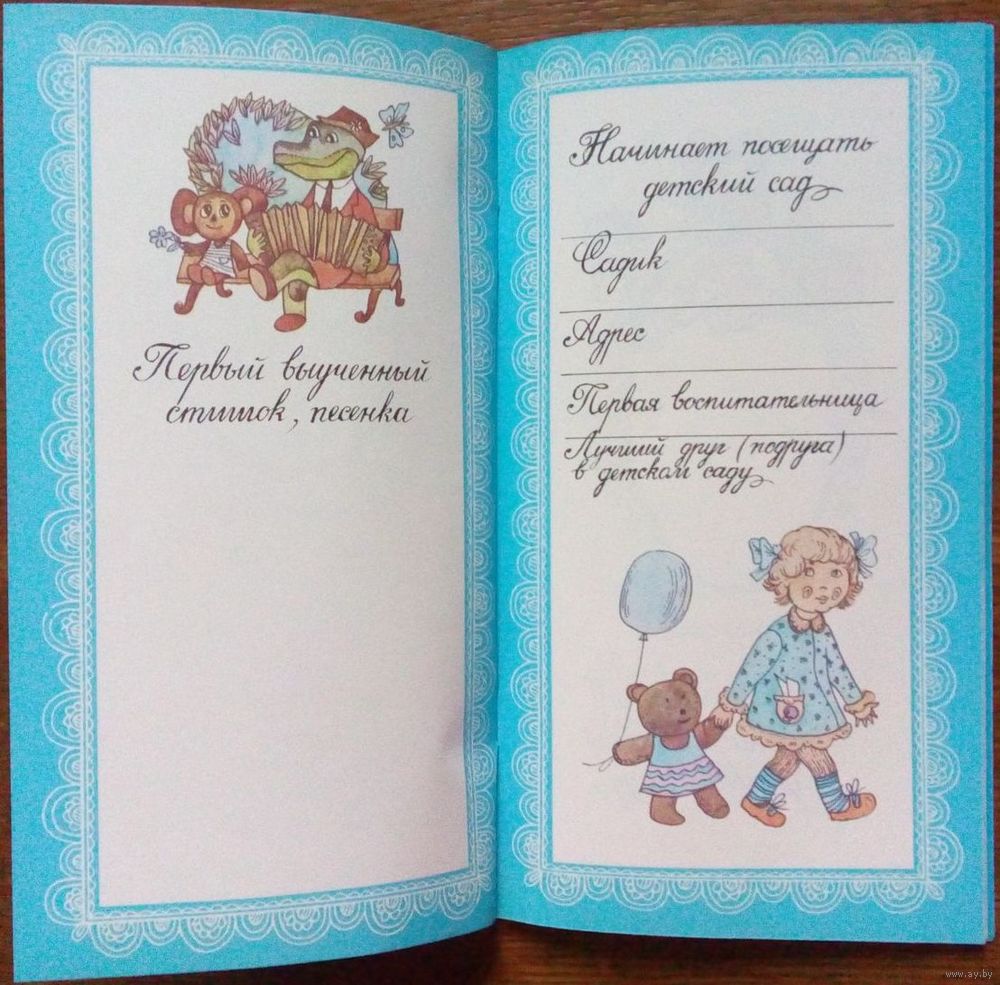 Первый выученный
стишок, песенка
Начинает посещать
детский сад
Садик
Адрес
Первая воспитательница
Лучший друг (подруга)
в детском саду
www.ay.by